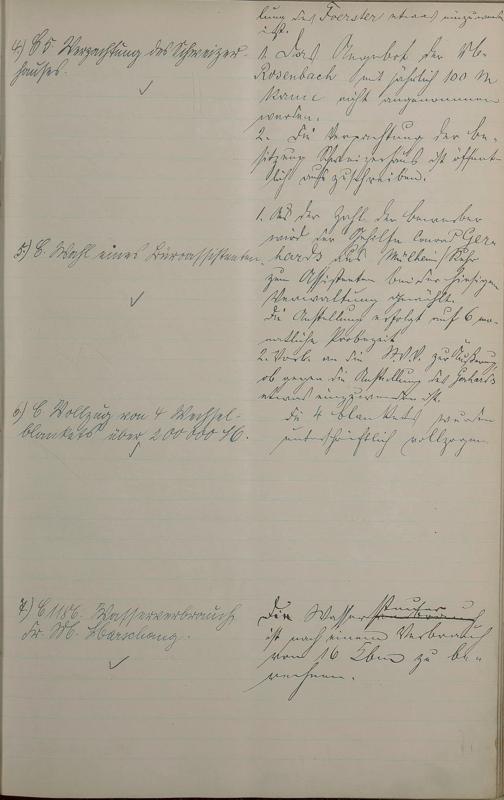 lung des Foerster etwas einzuwenden
ist.
4) E 5 Verpachtung des Schweizer-
hauses.
1. Das Angebot der Wb.
Rosenbach mit jährlich 100 M
kann nicht angenommen
werden.
2. Die Verpachtung der Be-
sitzung Schweizerhaus ist öffent-
lich auszuschreiben.
5) E. Wahl eines Büroassistenten.
1. Aus der Zahl der Bewerber
wird der Gehilfe Conrad Ger-
hards aus Mülheim/Ruhr
zum Assistenten bei der hiesigen
Verwaltung gewählt.
Die Anstellung erfolgt auf 6 mo-
natliche Probezeit
2. Vorl. an die St.V.V. zur Äußerung,
ob gegen die Anstellung des Gerhards
etwas einzuwenden ist.
6) E Vollzug von 4 Wechsel-
blankets über 200000 M.
Die 4 Blankets wurden
unterschriftlich vollzogen
7) E 1186. Wasserverbrauch
Fr. Wb.
Die Wasser
ist nach einem Verbrauch
von 16 Cbm zu be-
rechnen.